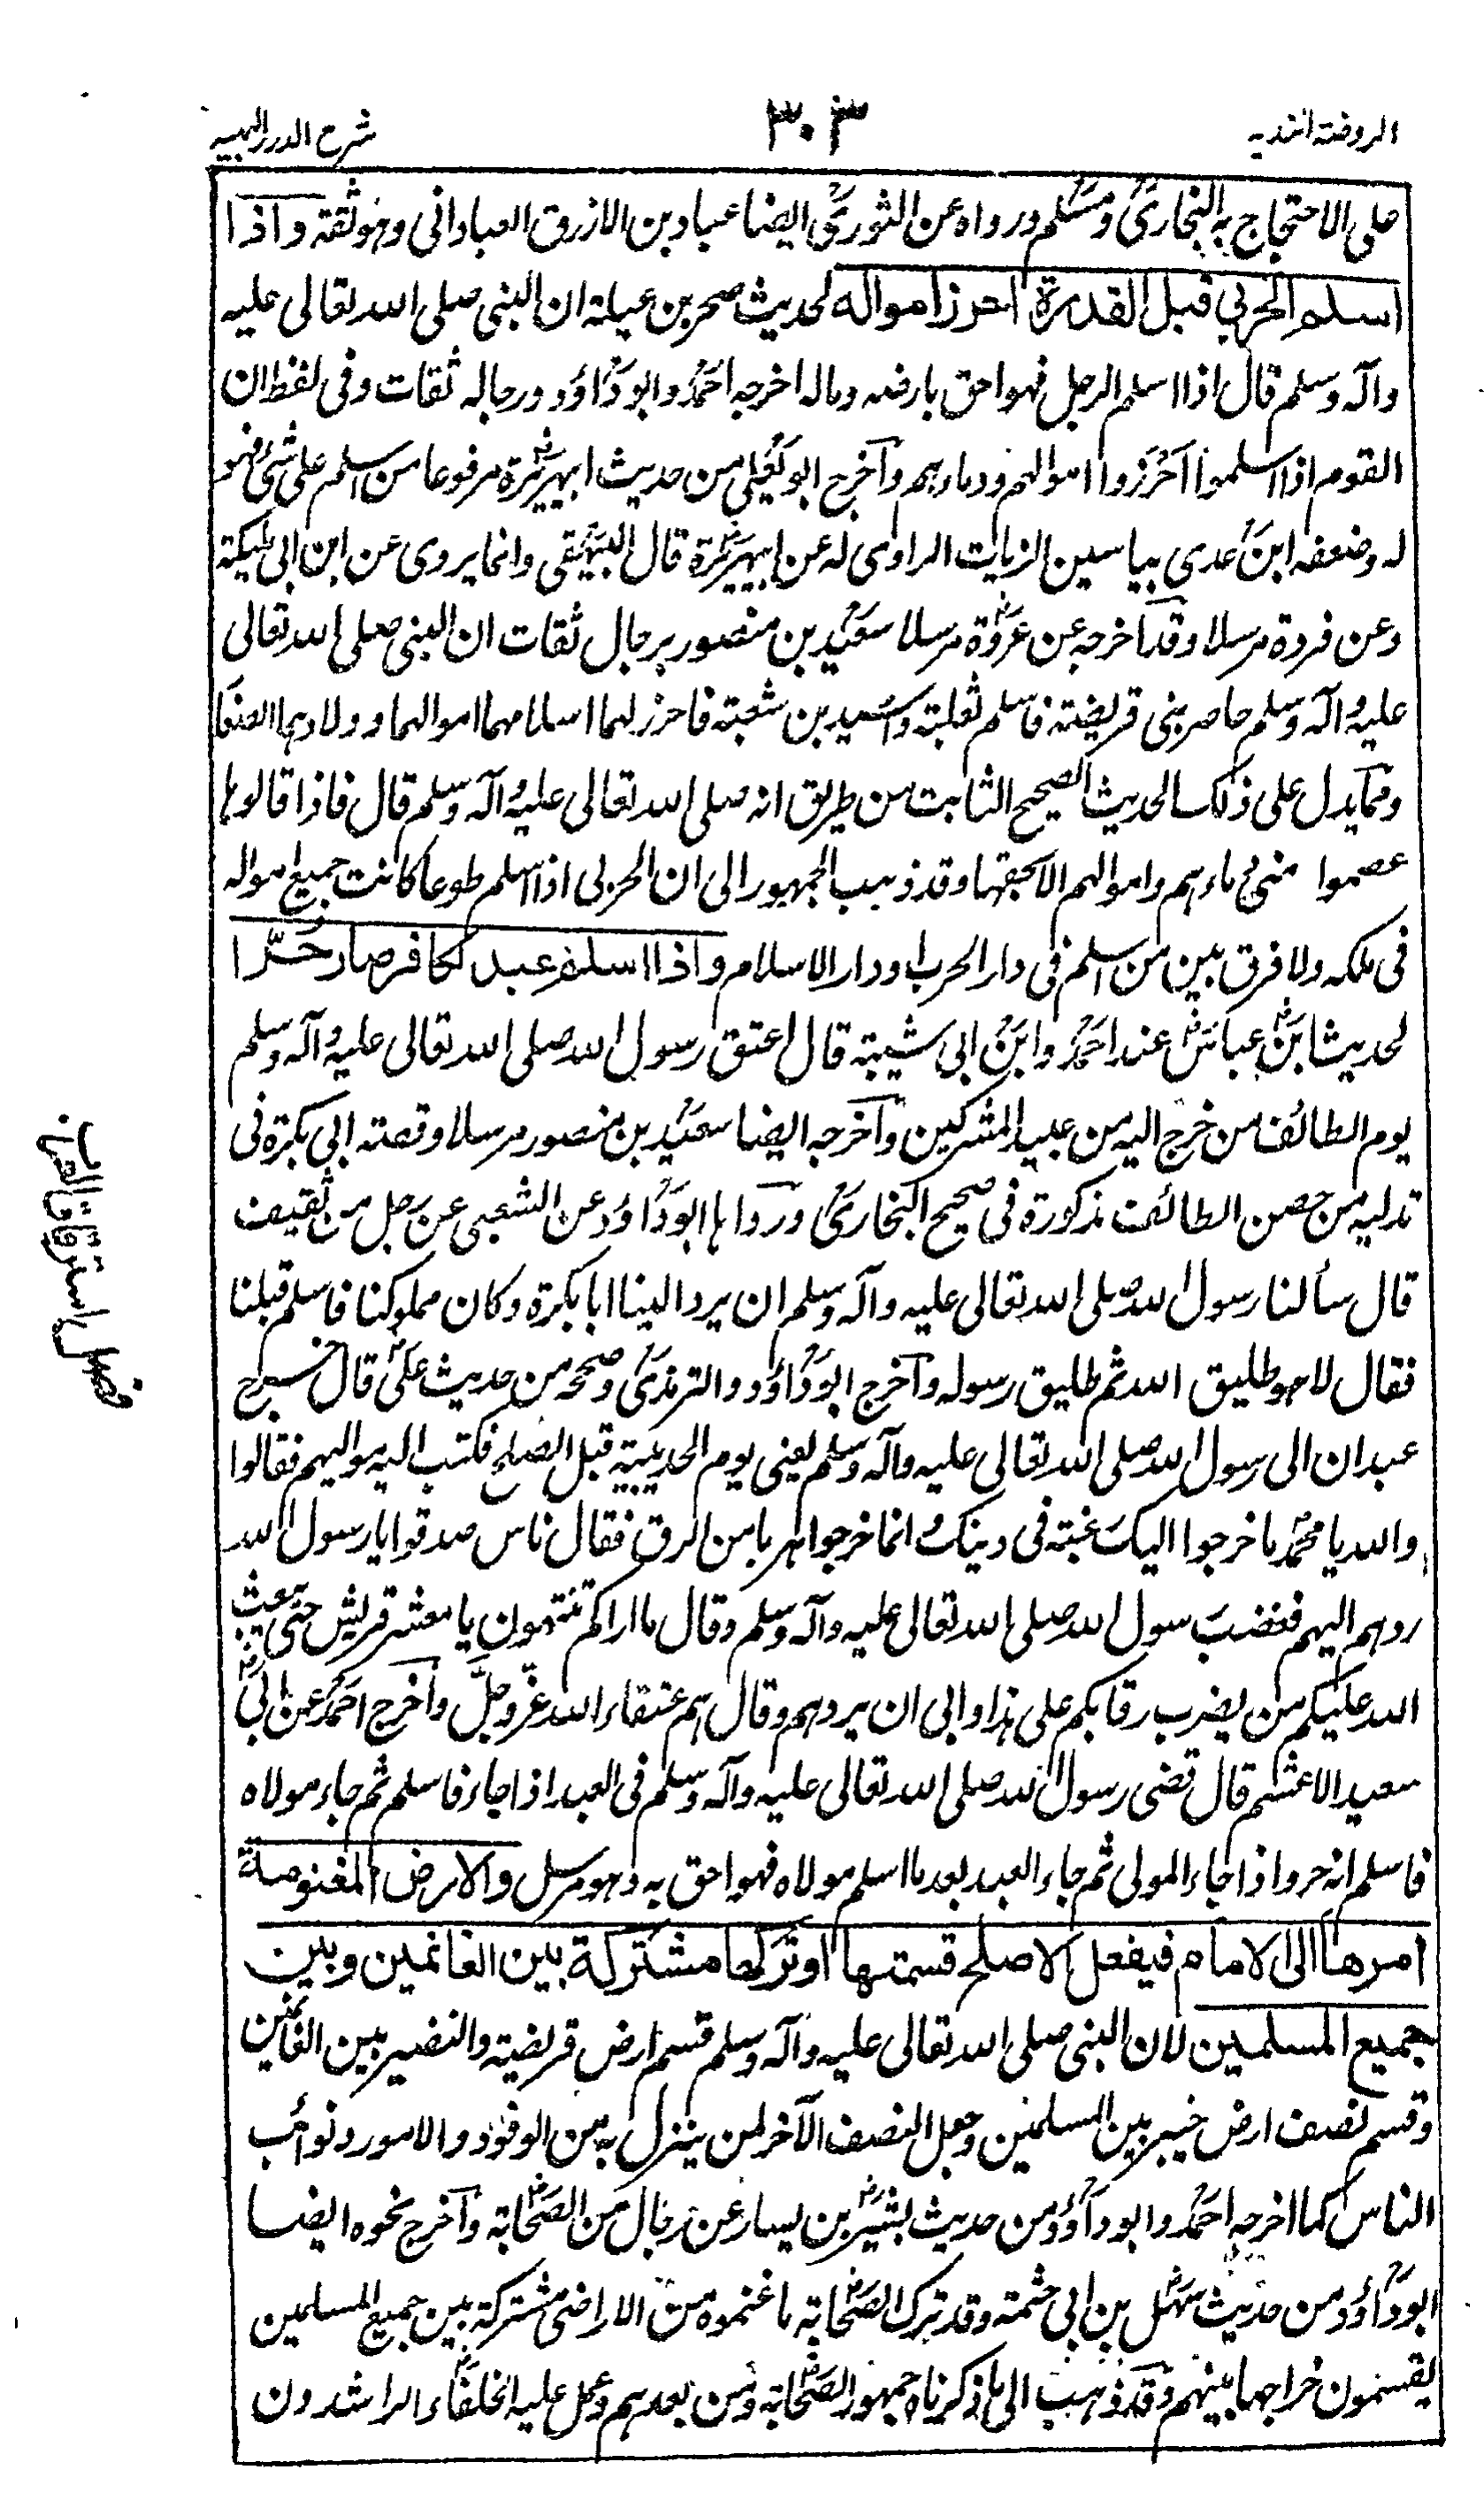 الروضة الندیه
٣٠٣
شرح الدرر البهیه
على الاحتجاج به البخاریؒ ومسلمؒ ورواه عن الثوریؒ ایضا عباد بن الازرق العبادانی وهو ثقة واذا
اسلم الحربي قبل القدرة احرز امواله لحدیث صخر بن عیلة ان النبی صلی الله تعالی علیه
وآله وسلم قال اذا اسلم الرجل فهو احق بارضه وماله اخرجه احمدؒ وابو داؤدؒ ورجاله ثقات وفی لفظ ان
القوم اذا اسلموا احرزوا اموالهم ودماءهم وآخرج ابو یعلیؒ من حدیث ابیهریرةؓ مرفوعا من اسلم علی شئ فهو
له وضعفه ابن عدیؒ بیاسین الزیات الراوی له عن ابیهریرةؓ قال البیهقیؒ وانما یروی عن ابن ابی ملیکة
وعن فروة مرسلا وقد اخرجه عن عروةؓ مرسلا سعیدؒ بن منصور برجال ثقات ان النبی صلی الله تعالی
علیه وآله وسلم حاصر بنی قریضة فاسلم ثعلبة واسید بن شعبة فاحرز لهما اسلامهما اموالهما وولادهما الصغار
ومما یدل علی ذلک الحدیث الصحیح الثابت من طریق انه صلی الله تعالی علیه وآله وسلم قال فاذا قالوها
عصموا منی دماءهم واموالهم الا بحقها وقد ذهب الجمهور الی ان الحربی اذا اسلم طوعا کانت جمیع امواله
فی ملکه ولا فرق بین من اسلم فی دار الحرب او دار الاسلام واذا اسلم عبد لكافر صار حُرّا
لحدیث ابنؓ عباسؓ عند احمدؒ وابنؒ ابی شیبة قال اعتق رسول الله صلی الله تعالی علیه وآله وسلم
یوم الطائف من خرج الیه من عبید المشرکین وآخرجه ایضا سعیدؒ بن منصور مرسلا وقصة ابی بکرة فی
تدلیه من حصن الطائف مذکورة فی صحیح البخاریؒ ورواها ابو داؤدؒ عن الشعبی عن رجل من ثقیف
قال سألنا رسول الله صلی الله تعالی علیه وآله وسلم ان یرد الینا ابا بکرة وکان مملوکنا فاسلم قبلنا
فقال لا هو طلیق الله ثم طلیق رسوله وآخرج ابو داؤدؒ والترمذیؒ وصححه من حدیث علیؓ قال خرج
عبدان الی رسول الله صلی الله تعالی علیه وآله وسلم یعنی یوم الحدیبیة قبل الصلح فکتب الیه موالیهم فقالوا
والله یا محمدؐ ما خرجوا الیک رغبة فی دینک وانما خرجوا هربا من الرق فقال ناس صدقوا یا رسول الله
ردهم الیهم فغضب رسول الله صلی الله تعالی علیه وآله وسلم وقال ما اراکم تنتهون یا معشر قریش حتی یبعث
الله علیکم من یضرب رقابکم علی هذا وابی ان یردهم وقال هم عتقاء الله عزّ وجلّ وآخرج احمدؒ عن ابی
سعید الاعشم قال قضی رسول الله صلی الله تعالی علیه وآله وسلم فی العبد اذا جاء فاسلم ثم جاء مولاه
فاسلم انه حر واذا جاء المولی ثم جاء العبد بعد ما اسلم مولاه فهو احق به وهو مرسل والارض المغنومة
امرها الى الامام فيفعل الاصلح قسمتها او تركها مشتركة بين الغانمين وبين
جميع المسلمين لان النبی صلی الله تعالی علیه وآله وسلم قسم ارض قریضة والنضیر بین الغانمین
وقسم نصف ارض خیبر بین المسلمین وجعل النصف الآخر لمن ینزل به من الوفود والامور ونوائب
الناس کما اخرجه احمدؒ وابو داؤدؒ من حدیث بشیرؓ بن یسار عن رجال من الصحابةؓ وآخرج نحوه ایضا
ابو داؤدؒ من حدیث سهلؓ بن ابی حثمة وقد ترک الصحابةؓ ما غنموه من الاراضی مشترکة بین جمیع المسلمین
یقسمون خراجها بینهم وقد ذهب الی ما ذکرناه جمهور الصحابةؓ ومن بعدهم وعمل علیه الخلفاء الراشدون
فصل استرقاق العرب